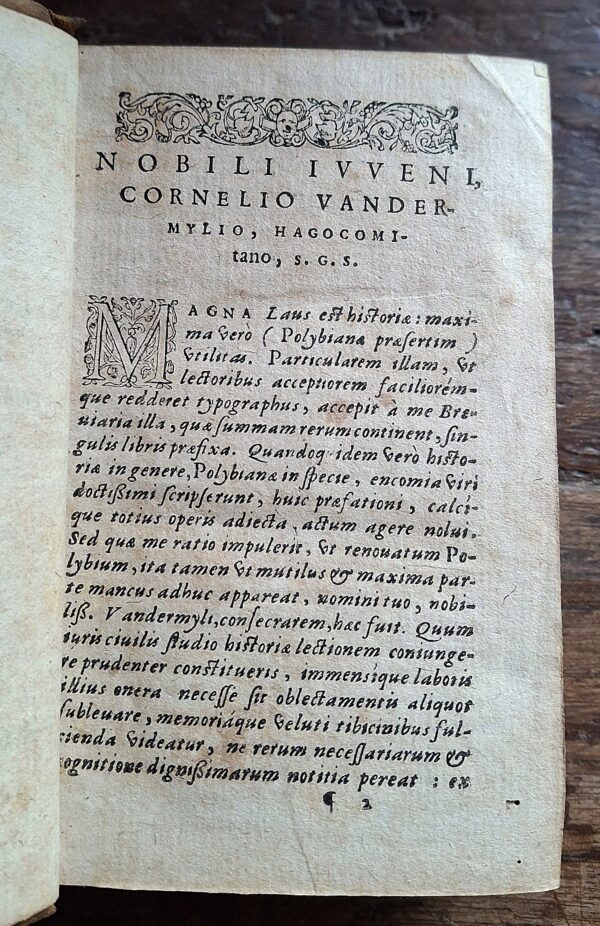 NOBILI IVVENI,
CORNELIO VANDER-
MYLIO, HAGOCOMI-
tano, S. G. S.
MAGNA Laus est historiæ: maxi-
ma verò (Polybianæ præsertim)
vtilitas. Particularem illam, vt
lectoribus acceptiorem faciliorém-
que redderet typographus, accepit à me Bre-
uiaria illa, quæ summam rerum continent, sin-
gulis libris præfixa. Quandoq; idem verò histo-
riæ in genere, Polybianæ in specie, encomia viri
doctißimi scripserunt, huic præfationi, calcí-
que totius operis adiecta, actum agere nolui.
Sed quæ me ratio impulerit, vt renouatum Po-
lybium, ita tamen vt mutilus & maxima par-
te mancus adhuc appareat, nomini tuo, nobi-
liß. Vandermyli, consecrarem, hæc fuit. Quum
iuris ciuilis studio historiæ lectionem coniunge-
re prudenter constitueris, immensíque laboris
illius onera necesse sit oblectamentis aliquot
subleuare, memoriáque veluti tibicinibus ful-
cienda videatur, ne rerum necessariarum &
cognitione dignißimarum notitia pereat : ex
¶ 2